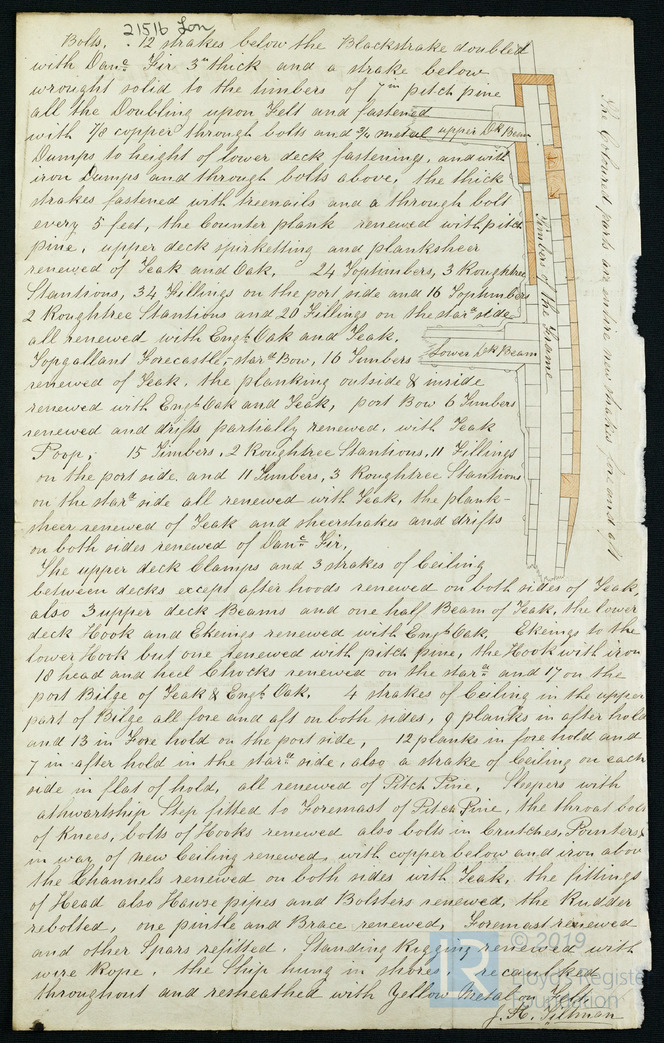 21516 Lon
Bolts. 12 strakes below the Blackstrake doubled
with Danc Fir 3" thick and a strake below
wrought solid to the timbers of 7 in pitch pine
all the Doubling upon Felt and fastened
with 7/8 copper through bolts and 3/4 metal
Dumps to height of lower deck fastenings, and with
iron Dumps and through bolts above, the thick
strakes fastened with treenails and a through bolt
every 5 feet, the Counter plank renewed with pitch
pine, upper deck spirketting and planksheer
renewed of Teak and Oak, 24 Toptimbers, 3 Roughtree
Stantions, 34 Fillings on the port side and 16 Toptimbers
2 Roughtree Stantions and 20 Fillings on the stard side
all renewed with Engh Oak and Teak.
Topgallant Forecastle, stard Bow, 16 Timbers
renewed of Teak, the planking outside & inside
renewed with Engh Oak and Teak, port Bow 6 Timbers
renewed and drifts partially renewed, with Teak
Poop, 15 Timbers, 2 Roughtree Stantions, 11 Fillings
on the port side, and 11 Timbers, 3 Roughtree Stantions
on the stard side all renewed with Teak, the plank-
sheer renewed of Teak and sheerstrakes and drifts
on both sides renewed of Danc Fir,
The upper deck Clamps and 3 strakes of Ceiling
between decks except after hoods renewed on both sides of Teak,
also 3 upper deck Beams and one half Beam of Teak, the lower
deck Hook and Ekeings renewed with Engh Oak, Ekeings to the
lower Hook but one renewed with pitch pine, the Hook with iron
18 head and heel Chocks renewed on the stard and 17 on the
port Bilge of Teak & Engh Oak, 4 strakes of Ceiling in the upper
part of Bilge all fore and aft on both sides, 9 planks in after hold
and 13 in Fore hold on the port side, 12 planks in fore hold and
7 in after hold in the stard side, also a strake of Ceiling on each
side in flat of hold, all renewed of Pitch Pine, Sleepers with
athwartship Step fitted to Foremast of Pitch Pine, the throat bolts
of Knees, bolts of Hooks renewed also bolts in Crutches, Pointers &
in way of new Ceiling renewed, with copper below and iron above
the Channels renewed on both sides with Teak, the fittings
of Head also Hawse pipes and Bolsters renewed, the Rudder
rebolted, one pintle and Brace renewed, Foremast renewed
and other Spars refitted. Standing Rigging renewed with
wire Rope, the Ship hung in shores, recaulked
throughout and resheathed with Yellow Metal on Felt
J. H. Tillman
upper Dk Beam
Timber of the Frame
Lower Dk Beam
The Coloured parts are entire new strakes fore and aft
© 2019
LR
Lloyd's Register
Foundation